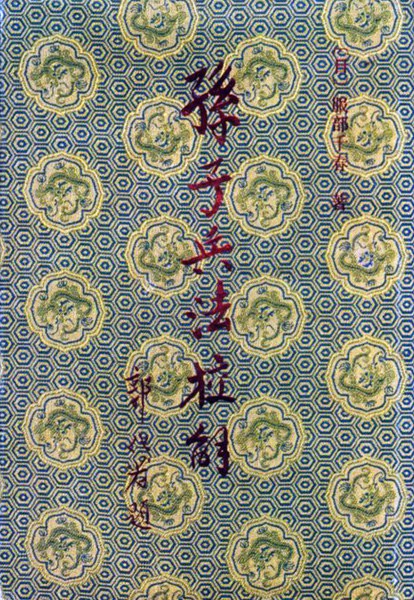 〔日〕服部千春 著
孫子兵法校解
郭化若題